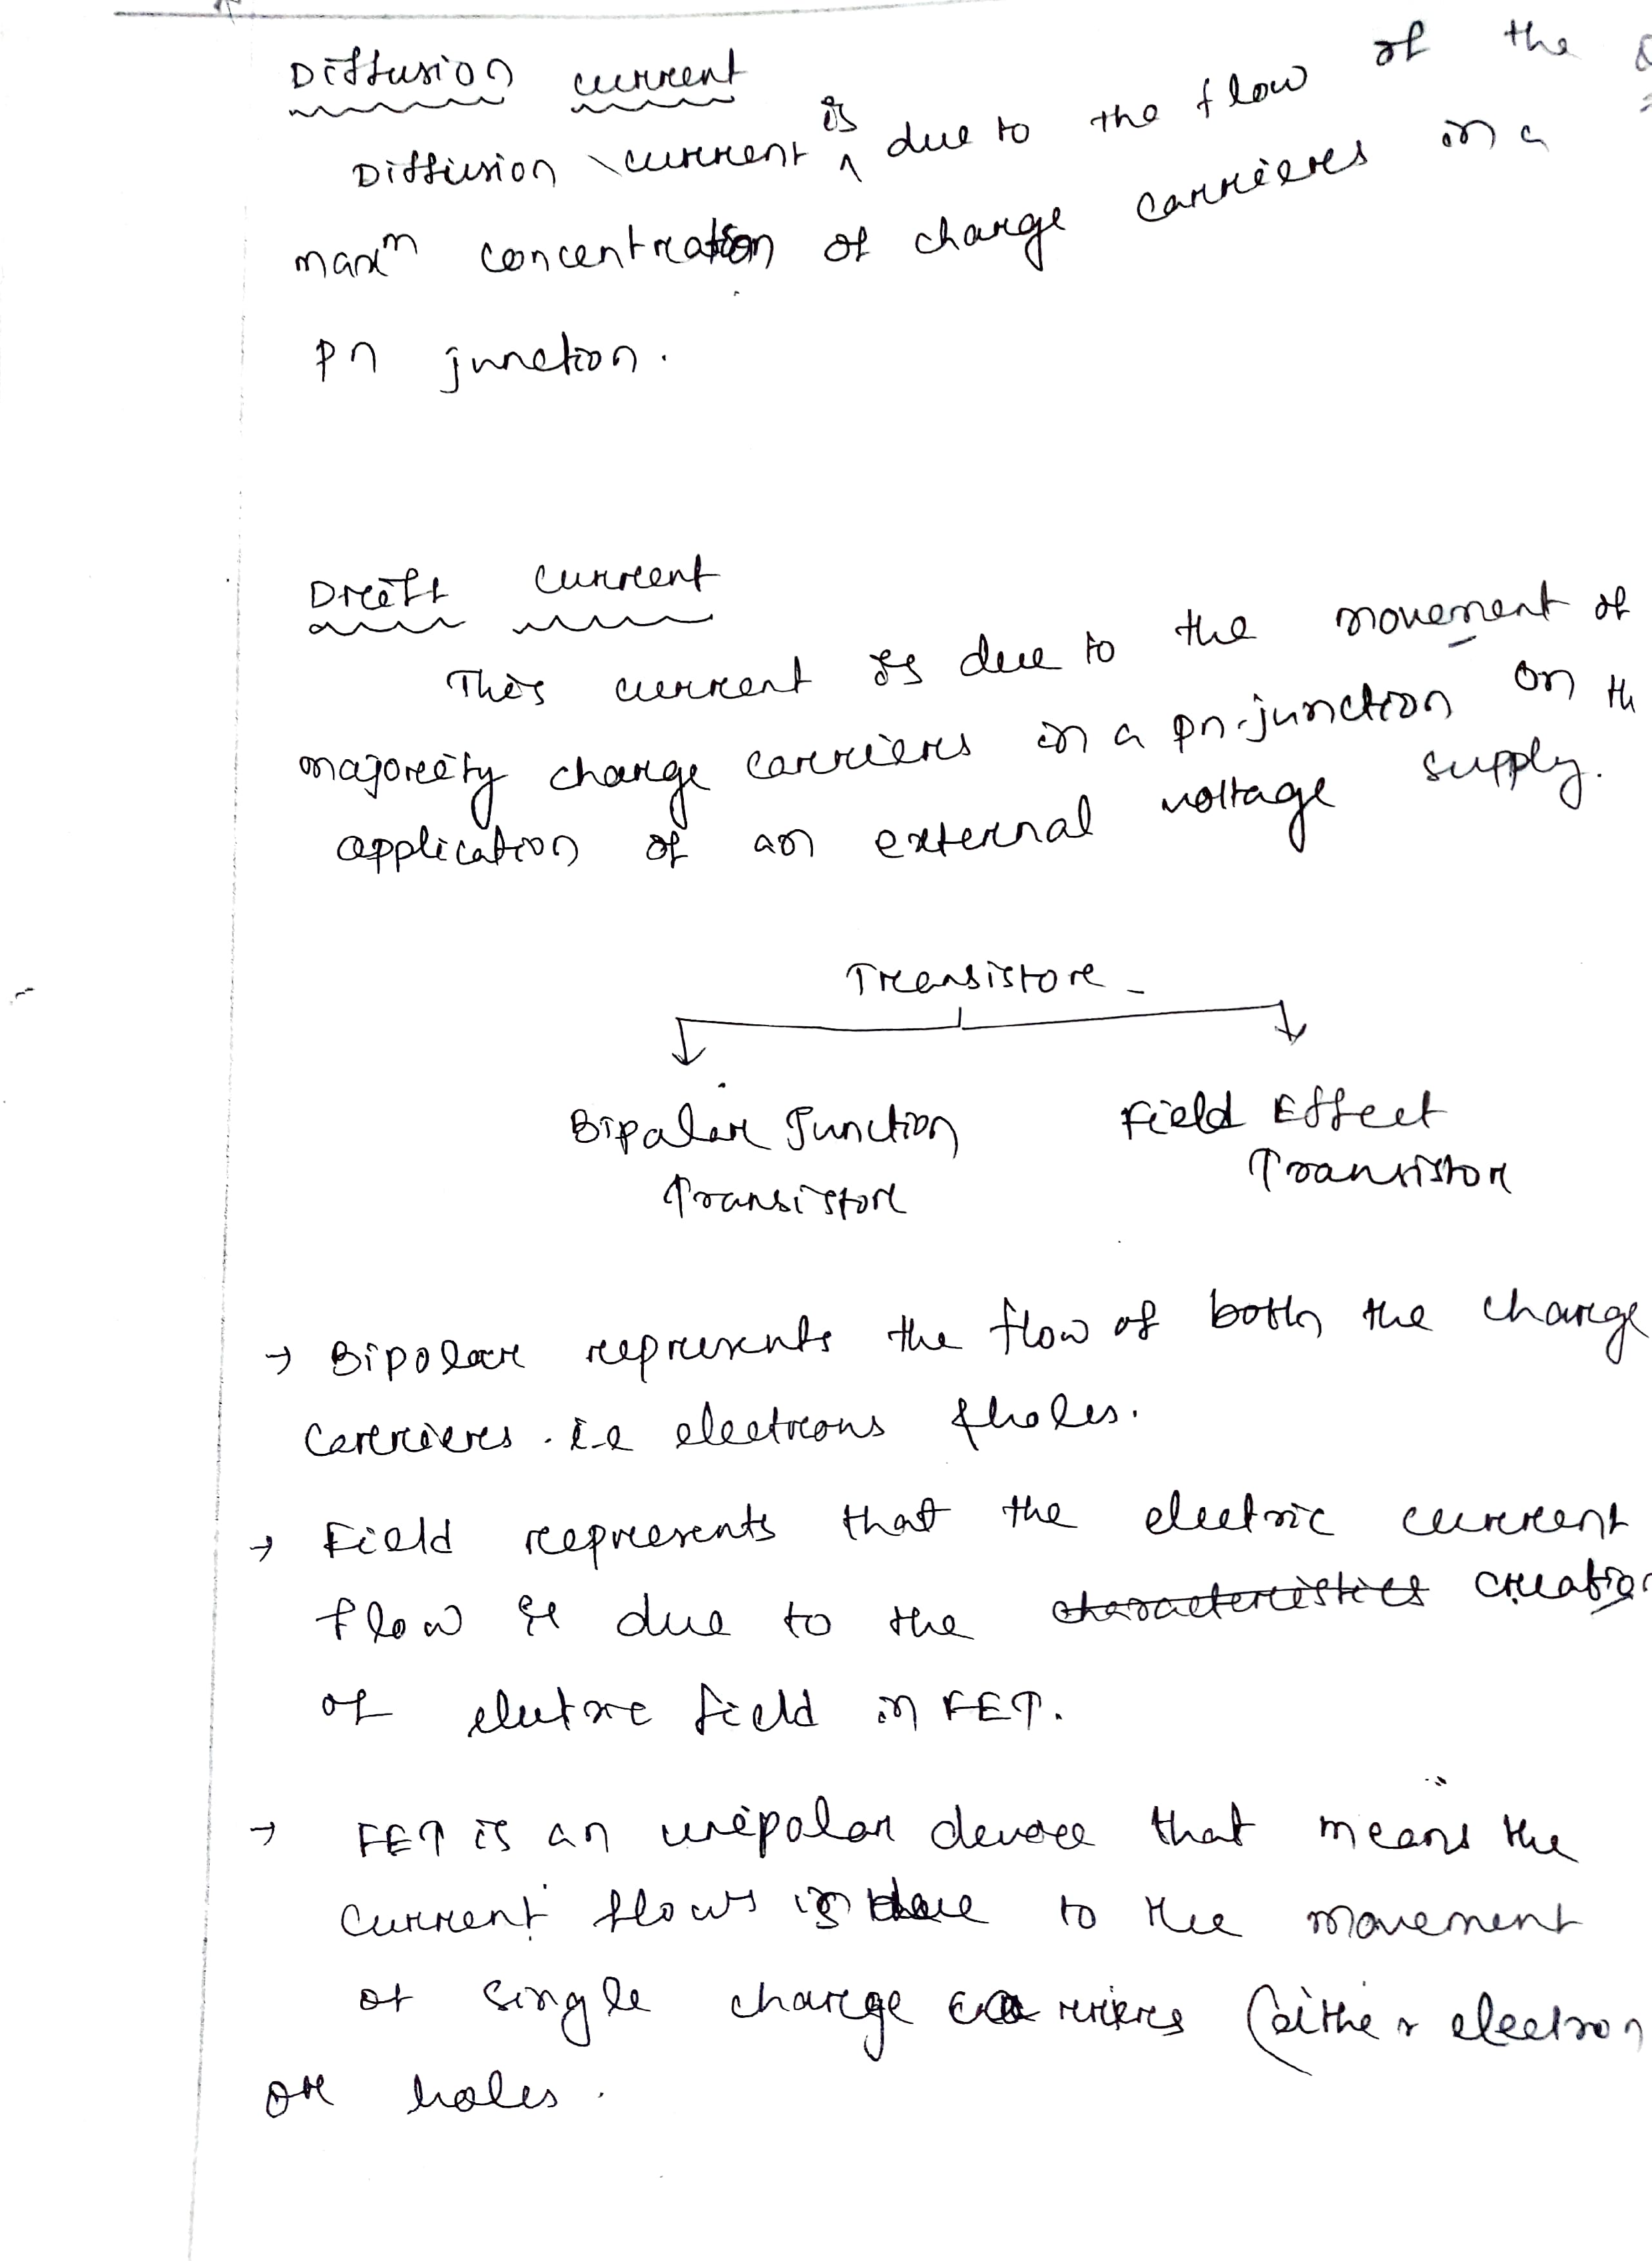 Diffusion current
Diffusion current is due to the flow of the
maxm concentration of charge carriers in a
pn junction.
Drift current
This current is due to the movement of
majority charge carriers in a pn-junction on th
application of an external voltage supply.
Transistor -
Bipolar Junction Field Effect
Transistor Transistor
→ Bipolar represents the flow of both the charge
carriers. i.e electrons & holes.
→ Field represents that the electric current
flow is due to the characteristics creation
of electric field in FET.
→ FET is an unipolar device that means the
current flows is due to the movement
of single charge carriers (either electron
or holes.